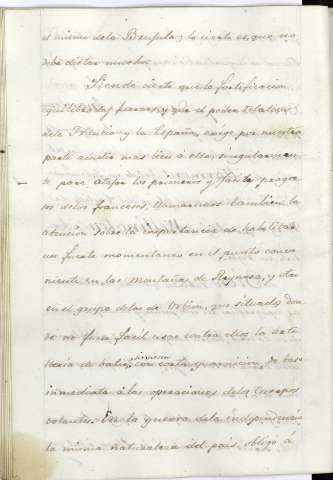 el mismo dela Brujula; lo cierto es, que no
debe distar mucho.
Siendo cierto que la fortificacion
equilibra las fuerzas, y que el poder relativo
dela Francia y la España, exige por nuestra
parte acudir mas bien á ellas, singularmen
te para atajar los primeros y faciles progre
sos delos franceses, llamaremos tambien la
atencion sobre la importancia de habilitar
un fuerte momentaneo en el punto conve
niente en las montañas de Reynosa, y otro
en el grupo delas de Urbion, que situado, don
de no fuera facil usar contra ellos la arti
lleria de batir, sirviesen con corta guarnicion de base
inmediata á las operaciones delos Cuerpos
volantes. En la guerra dela independencia
la misma naturaleza del pais, obligó á